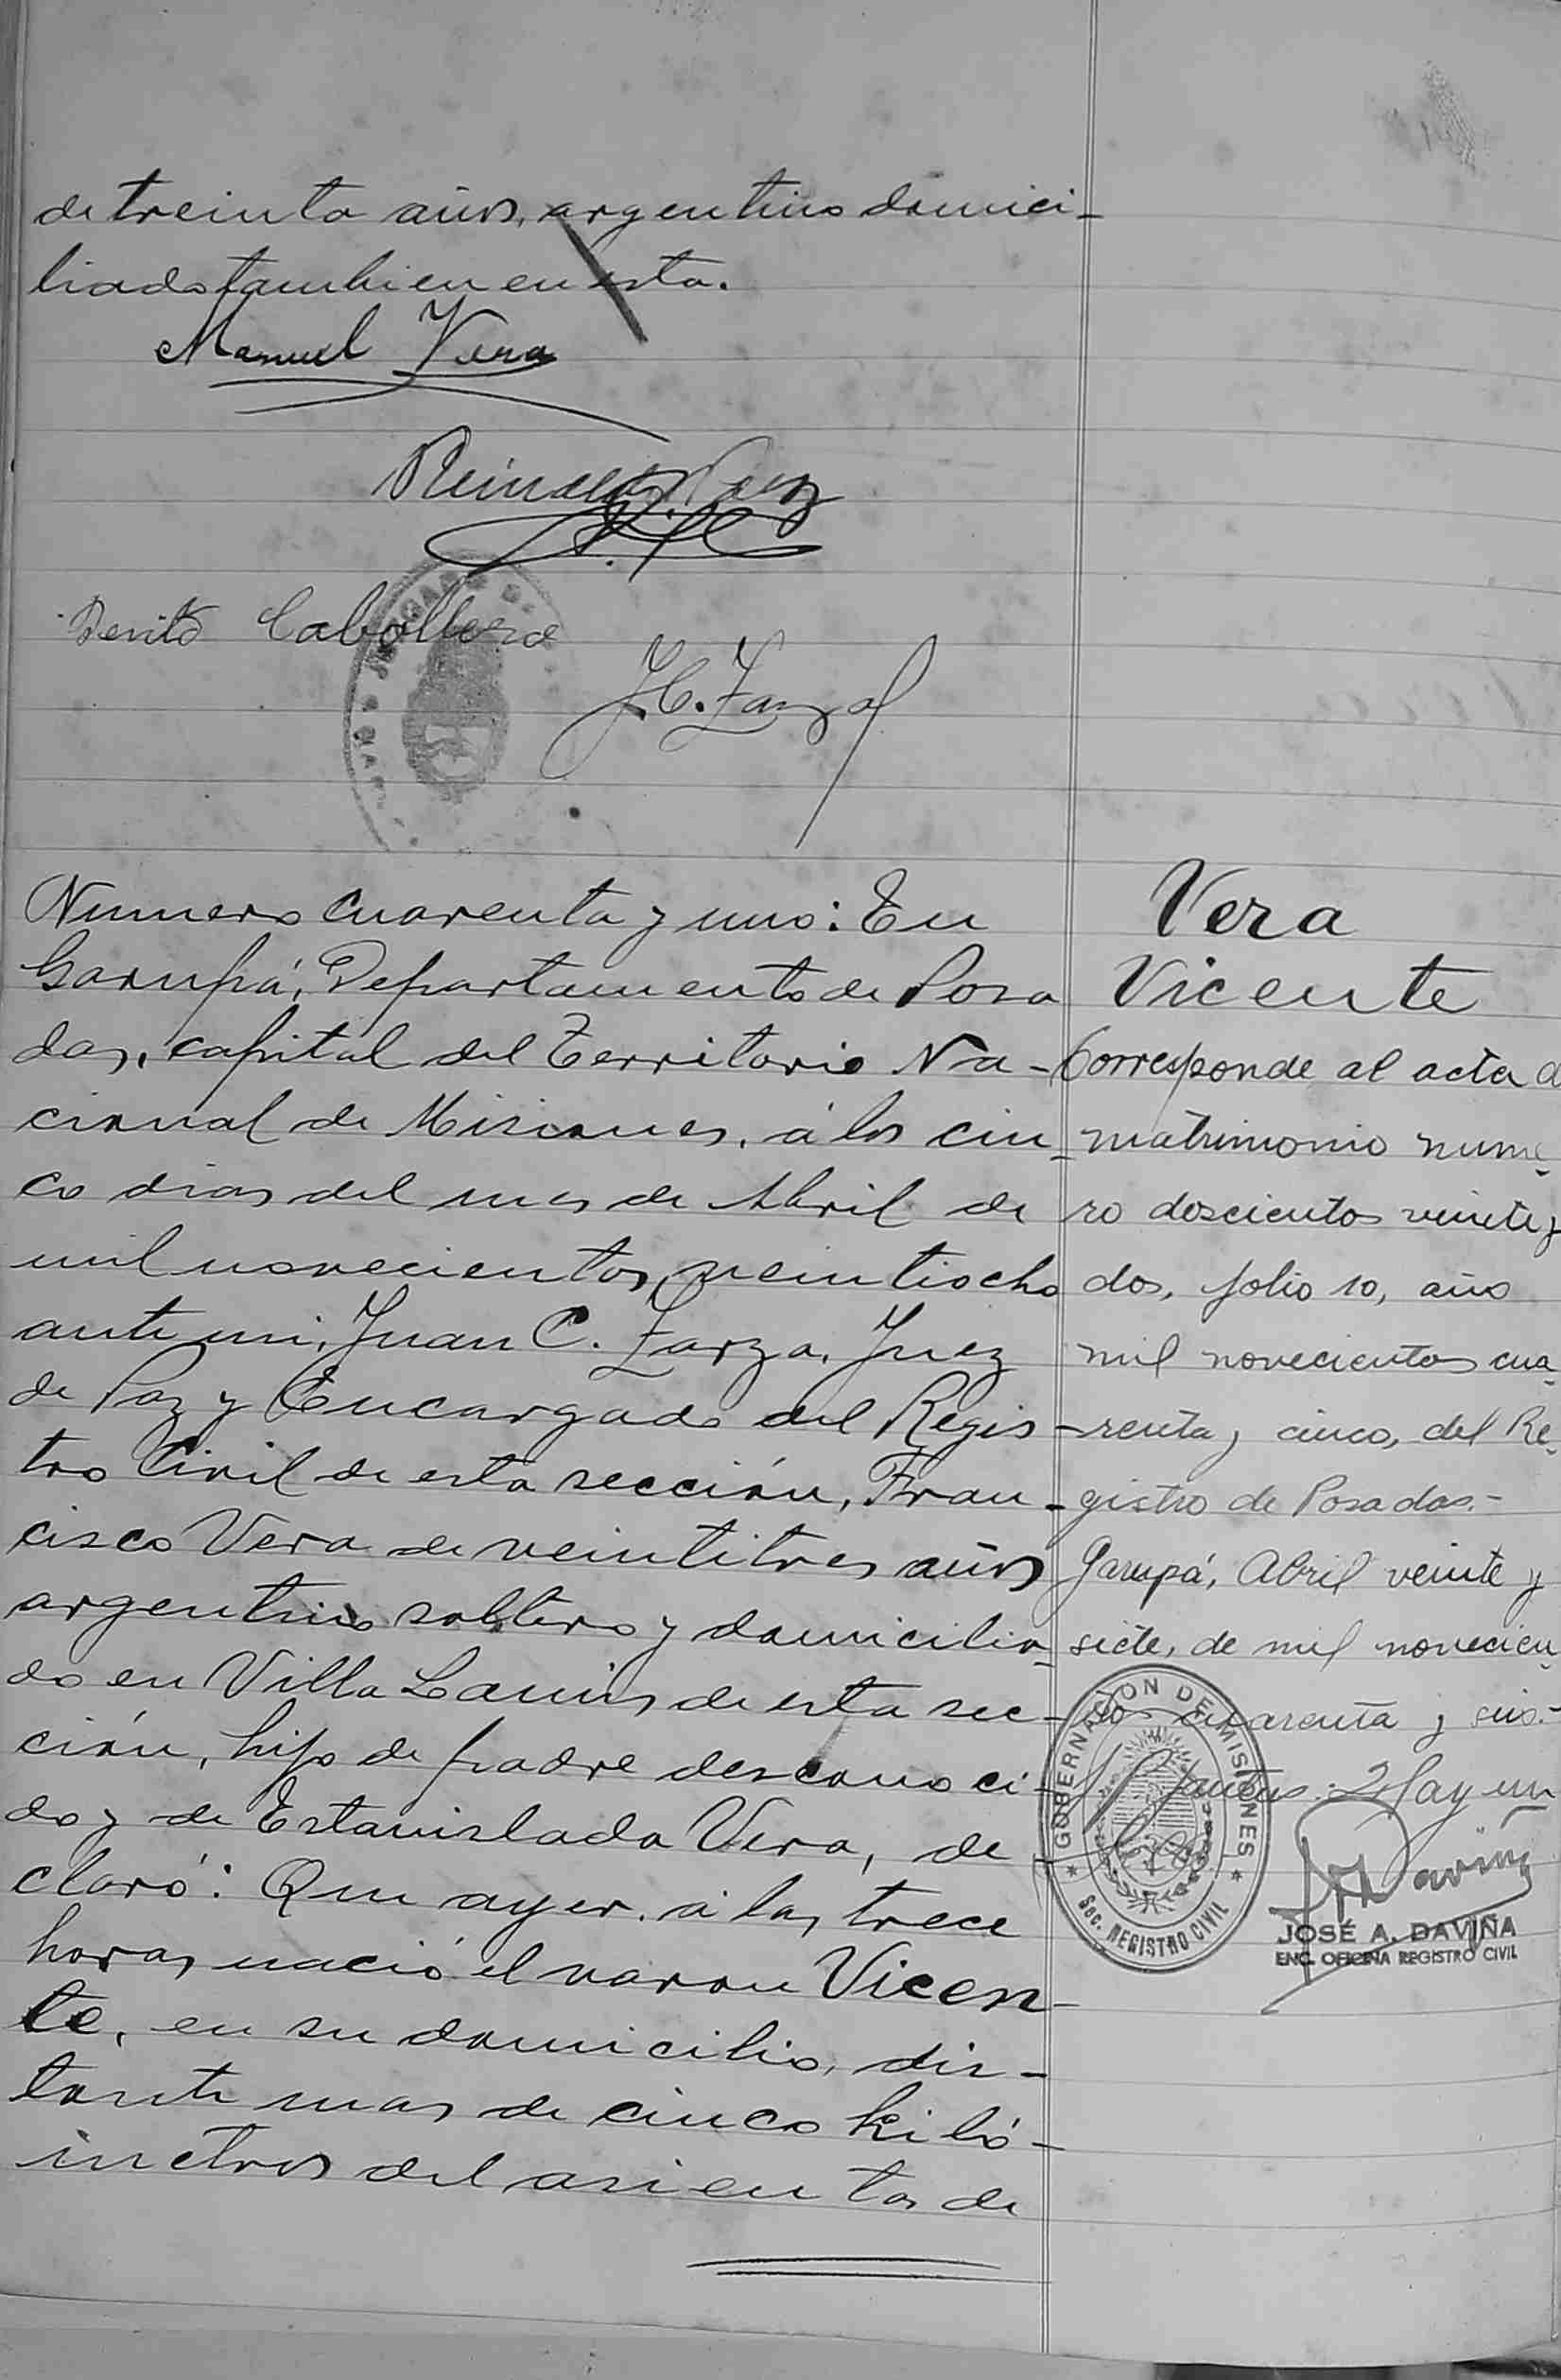 de treinta años, argentino domici-
liado tambien en esta.
Manuel Vera
Benito Caballero
J.C. Zarza
Numero cuarenta y uno: En
Garupá, Departamento de Posa
das, capital del Territorio Na-
cional de Misiones, á los cin-
co dias del mes de Abril de
mil novecientos veintiocho
ante mi, Juan C. Zarza, Juez
de Paz y Encargado del Regis-
tro Civil de esta sección, Fran-
cisco Vera de veintitres años
argentino soltero y domicilia-
do en Villa Lanús de esta sec-
ción, hijo de padre desconoci-
do y de Estanislada Vera, de-
claró: Que ayer, á las trece
horas nació el varon Vicen-
te, en su domicilio, dis-
tante mas de cinco kiló-
metros del asiento de
Vera
Vicente
Corresponde al acta d
matrimonio nume-
ro doscientos veinte y
dos, folio 10, año
mil novecientos cua-
renta y cinco, del Re-
gistro de Posadas.-
Garupá, Abril veinte y
siete, de mil novecien-
tos cuarenta y seis.-
GOBERNACION DE MISIONES
Sec. REGISTRO CIVIL
JOSÉ A. DAVIÑA
ENC. OFICINA REGISTRO CIVIL